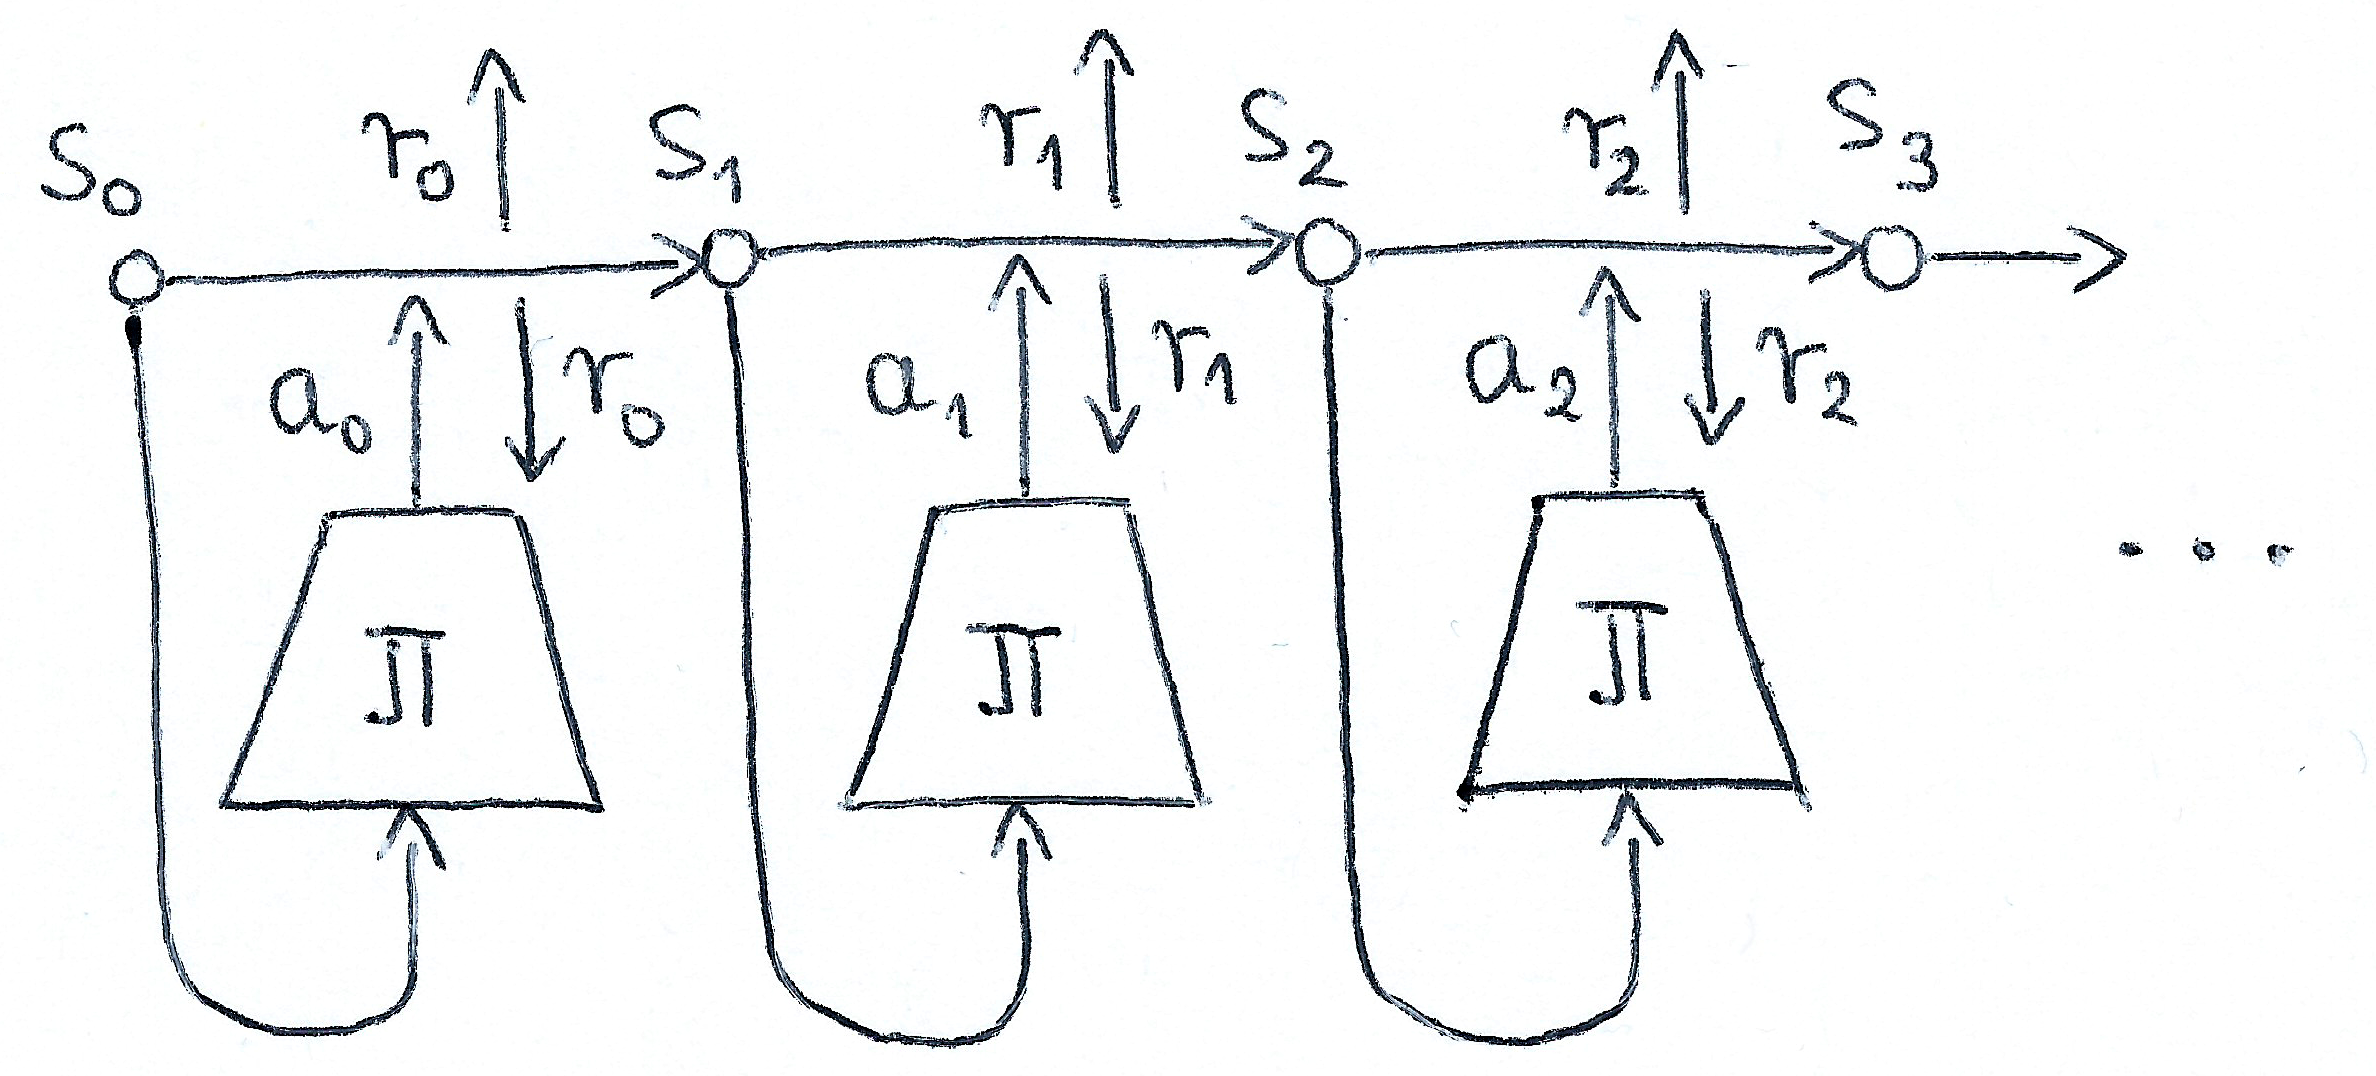 S0 r0 S1 r1 S2 r2 S3
a0 r0 a1 r1 a2 r2
π π π
...